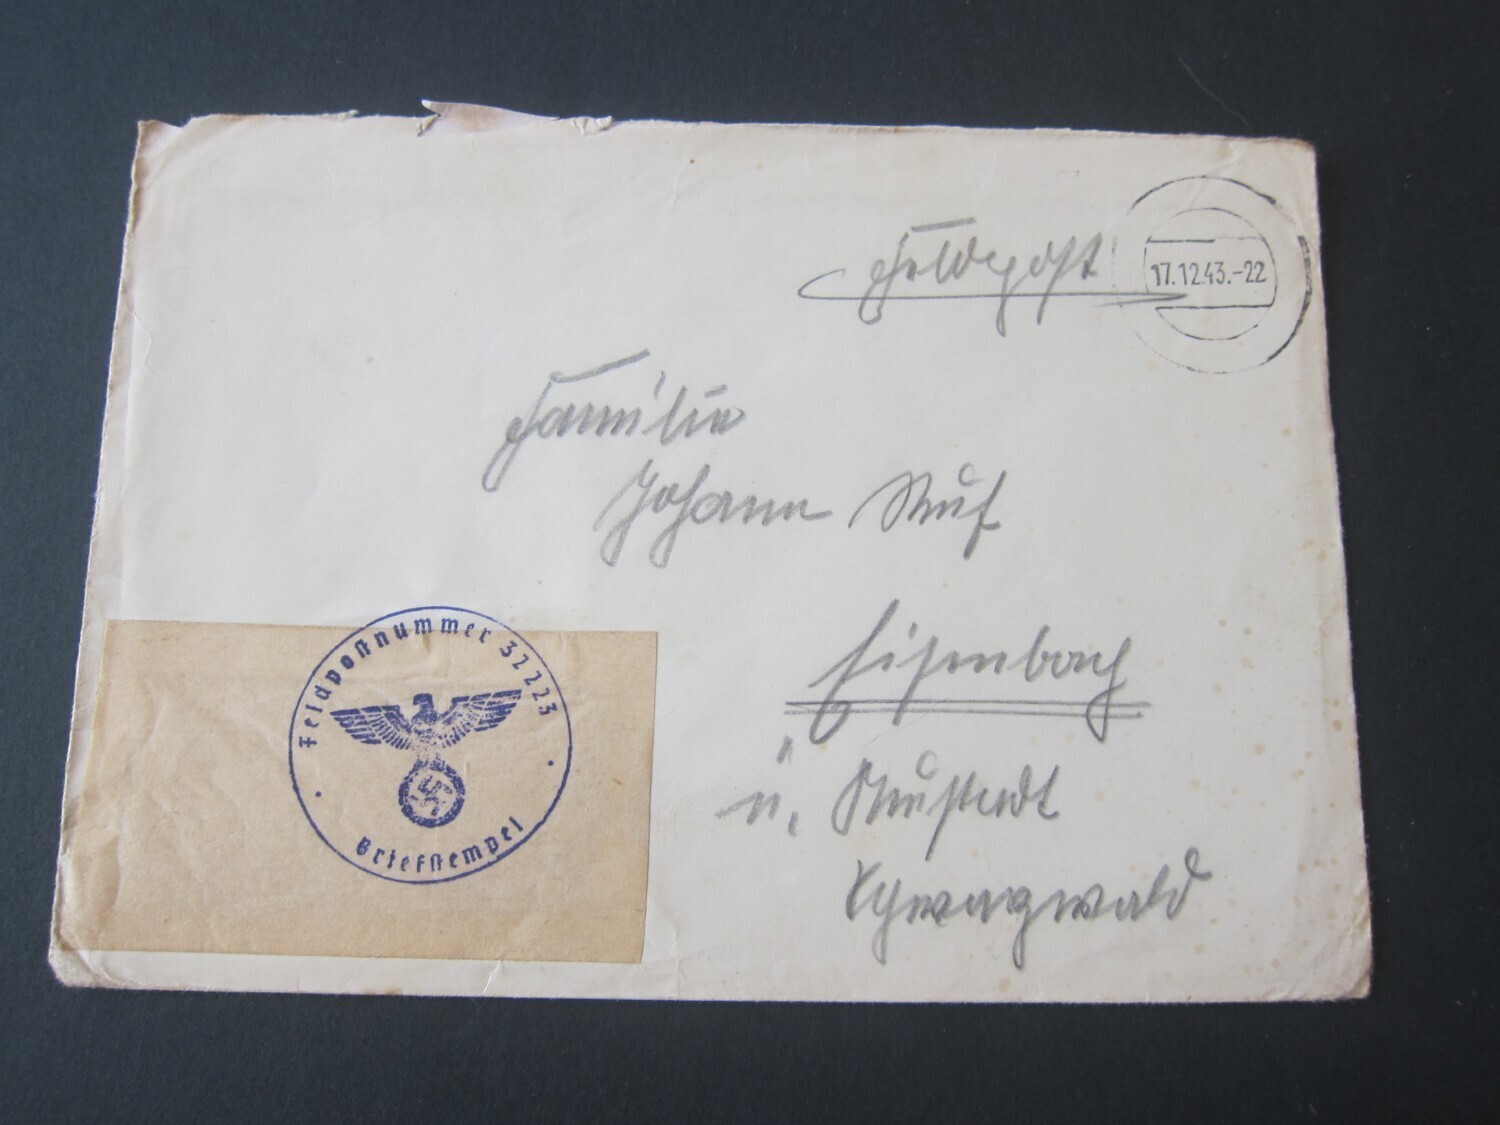 Feldpost
17.12.43.-22
Familie
Johann Ruf
Eisenbach
ü. Neustadt
Schwarzwald
Feldpostnummer 32223
Briefstempel